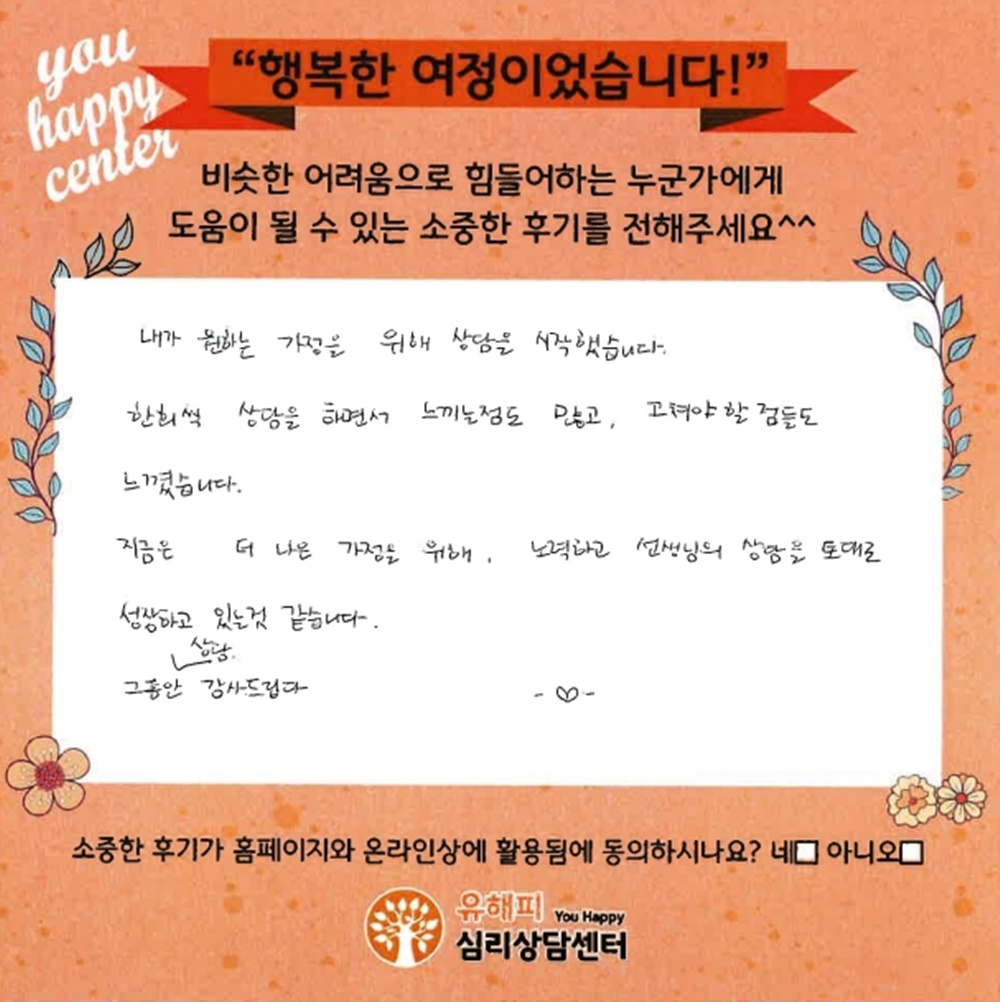 you
happy
center
“행복한 여정이었습니다!”
비슷한 어려움으로 힘들어하는 누군가에게
도움이 될 수 있는 소중한 후기를 전해주세요^^
내가 원하는 가정을 위해 상담을 시작했습니다.
한회씩 상담을 하면서 느끼는점도 많고, 고쳐야 할 점들도
느꼈습니다.
지금은 더 나은 가정을 위해, 노력하고 선생님의 상담을 토대로
성장하고 있는것 같습니다.
상담.
그동안 감사드립다
소중한 후기가 홈페이지와 온라인상에 활용됨에 동의하시나요? 네□ 아니오□
유해피 You Happy
심리상담센터